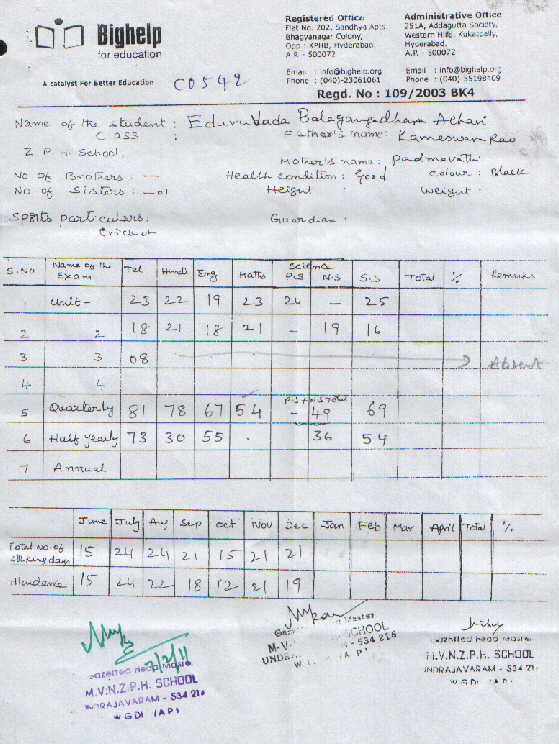 Bighelp
for education
A catalyst For Better Education
C0542
Registered Office
Flat No. 202, Sandhya Apts.
Bhagyanagar Colony,
Opp: KPHB, Hyderabad.
A.P. - 500072
Email : info@bighelp.org
Phone : (040)-23061061
Administrative Office
251A, Addagutta Society,
Western Hills, Kukatpally,
Hyderabad.
A.P. - 500072
Email : info@bighelp.org
Phone : (040)
Regd. No : 109/2003 BK4
Name of the student : Balagangadhara Achari
Class : Father's name: Kameswara Rao
Z P H School. Mother's name: padmavathi
No of Brothers: — Health condition: Good colour: Black
No of Sisters: — 01 Height : weight :
Sports particulars: Guardian :
Cricket
S.NO Name of the Exam Tel Hindi Eng Maths Science P.S N.S S.S Total % Remarks
Unit - 23 22 19 23 26 - 25
2 2 18 21 18 21 - 19 16
3 3 08 Absent
4 4
5 Quarterly 81 78 67 54 - 49 69
6 Half yearly 73 30 55 . 36 54
7 Annual
June July Aug Sep Oct Nov Dec Jan Feb Mar April Total %
Total No. of working days 15 24 24 21 15 21 21
Attendence 15 22 18 12 21 19
Gazetted Head Master
M.V.N.Z.P.H. SCHOOL
INDRAJAVARAM - 534 216
W.GDI (A.P)
SCHOOL
534 216
(A.P)
Gazetted Head Master
M.V.N.Z.P.H. SCHOOL
INDRAJAVARAM - 534 216
W.G.DI (A.P)